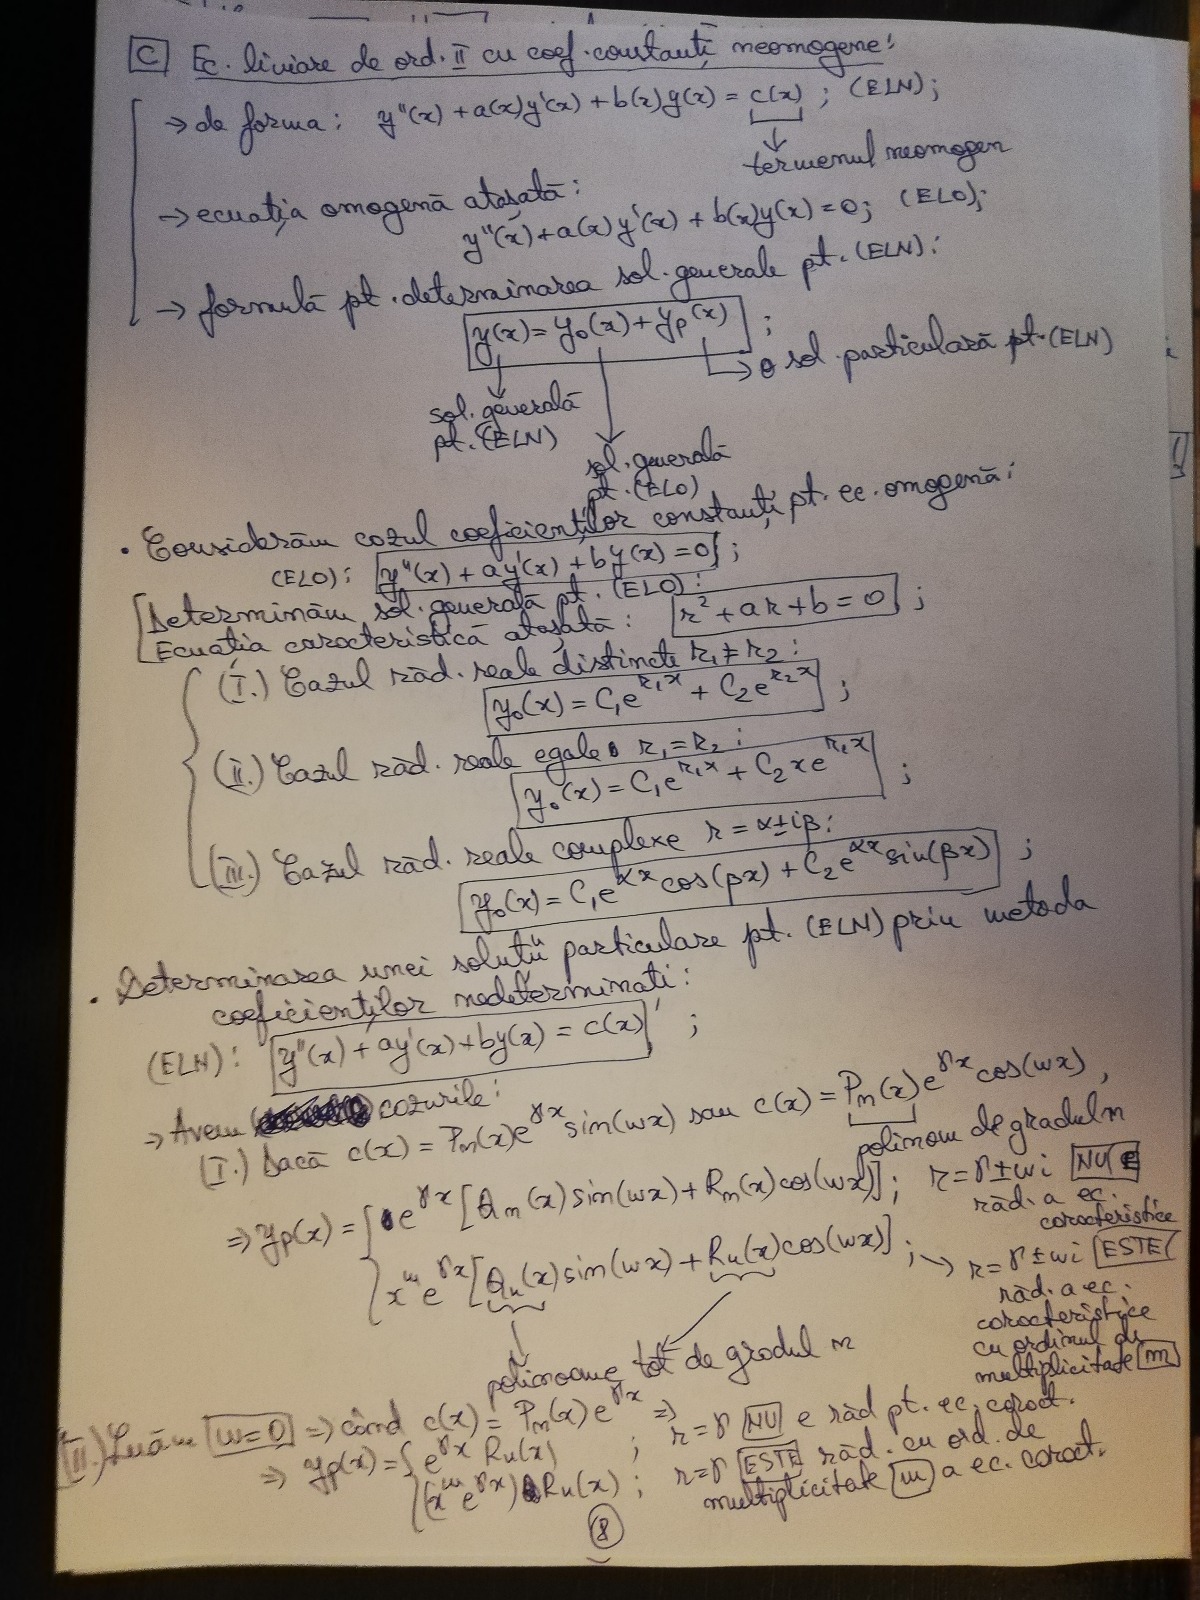 C Ec. liniare de ord. II cu coef. constanți neomogene:
→ de forma: y''(x) + a(x)y'(x) + b(x)y(x) = c(x) ; (ELN);
termenul neomogen
→ ecuația omogenă atașată:
y''(x) + a(x)y'(x) + b(x)y(x) = 0; (ELO);
→ formulă pt. determinarea sol. generale pt. (ELN):
y(x) = y₀(x) + yp(x) ;
o sol. particulară pt. (ELN)
sol. generală
pt. (ELN)
sol. generală
pt. (ELO)
• Considerăm cazul coeficienților constanți pt. ec. omogenă:
(ELO): y''(x) + ay'(x) + by(x) = 0 ;
Determinăm sol. generală pt. (ELO):
Ecuația caracteristică atașată: r² + ar + b = 0 ;
(I.) Cazul răd. reale distincte r₁ ≠ r₂ :
y₀(x) = C₁e^{r₁x} + C₂e^{r₂x} ;
(II.) Cazul răd. reale egale r₁ = r₂ :
y₀(x) = C₁e^{r₁x} + C₂xe^{r₁x} ;
(III.) Cazul răd. reale complexe r = α ± iβ :
y₀(x) = C₁e^{αx}cos(βx) + C₂e^{αx}sin(βx) ;
• Determinarea unei soluții particulare pt. (ELN) prin metoda
coeficienților nedeterminați:
(ELN): y''(x) + ay'(x) + by(x) = c(x) ;
→ Avem cazurile:
(I.) Dacă c(x) = Pn(x)e^{γx}sin(wx) sau c(x) = Pn(x)e^{γx}cos(wx),
polinom de gradul n
⇒ yp(x) = { e^{γx}[Qn(x)sin(wx) + Rn(x)cos(wx)] ; r = γ ± wi NU E
răd. a ec.
caracteristice
x^m e^{γx}[Qn(x)sin(wx) + Rn(x)cos(wx)] ; → r = γ ± wi ESTE
răd. a ec.
caracteristice
cu ordinul de
multiplicitate m
polinoame tot de gradul n
(II.) Luăm w = 0 ⇒ când c(x) = Pn(x)e^{γx} ⇒
⇒ yp(x) = { e^{γx} Rn(x) ; r = γ NU e răd pt. ec. caract.
(x^m e^{γx}) Rn(x) ; r = γ ESTE răd. cu ord. de
multiplicitate m a ec. caract.
8